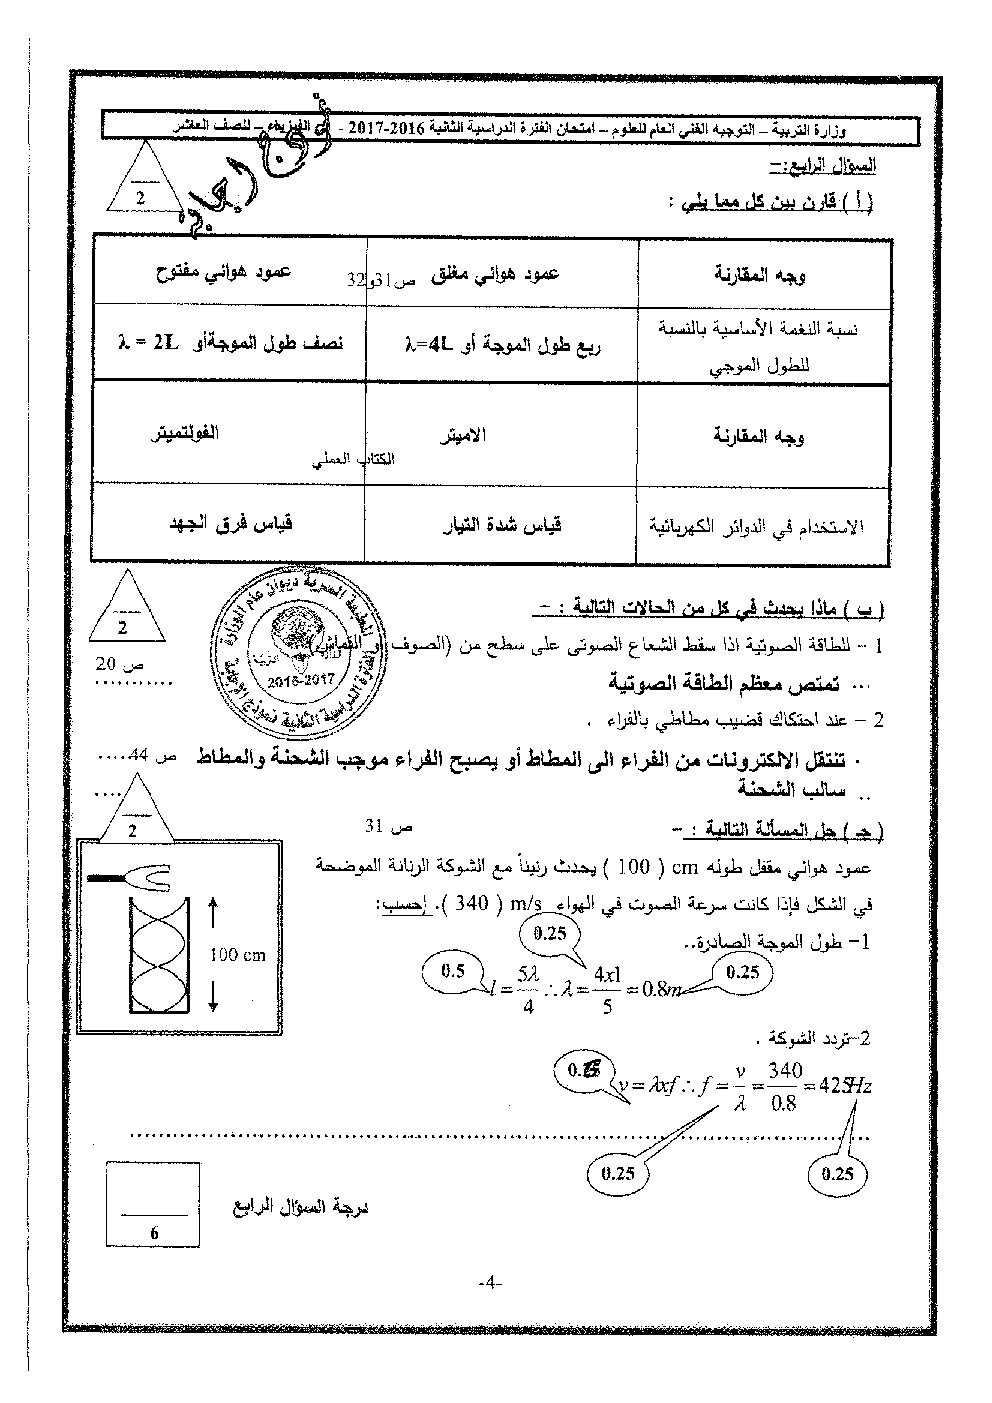 وزارة التربية – التوجيه الفني العام للعلوم – امتحان الفترة الدراسية الثانية 2016-2017 - في الفيزياء – للصف العاشر
السؤال الرابع:-
2
( أ ) قارن بين كل مما يلي :
وجه المقارنة
عمود هوائي مغلق ص31و32
عمود هوائي مفتوح
نسبة النغمة الأساسية بالنسبة للطول الموجي
ربع طول الموجة أو λ=4L
نصف طول الموجةأو λ = 2L
وجه المقارنة
الاميتر
الفولتميتر
الكتاب العملي
الاستخدام في الدوائر الكهربائية
قياس شدة التيار
قياس فرق الجهد
2
( ب ) ماذا يحدث في كل من الحالات التالية : –
1 – للطاقة الصوتية اذا سقط الشعاع الصوتى على سطح من (الصوف – القماش)
ص 20
... تمتص معظم الطاقة الصوتية
2 – عند احتكاك قضيب مطاطي بالفراء .
. تنتقل الالكترونات من الفراء الى المطاط أو يصبح الفراء موجب الشحنة والمطاط ص 44.....
.. سالب الشحنة ....
2016-2017
2
( جـ ) حل المسألة التالية : –
ص 31
عمود هوائي مقفل طوله cm ( 100 ) يحدث رنيناً مع الشوكة الرنانة الموضحة
في الشكل فإذا كانت سرعة الصوت في الهواء m/s ( 340 ). إحسب:
100 cm
1– طول الموجة الصادرة..
0.5
0.25
0.25
l = 5λ/4 ∴ λ = 4x1/5 = 0.8m
2–تردد الشوكة .
v = λxf ∴ f = v/λ = 340/0.8 = 425Hz
0.25
0.25
درجة السؤال الرابع
6
-4-